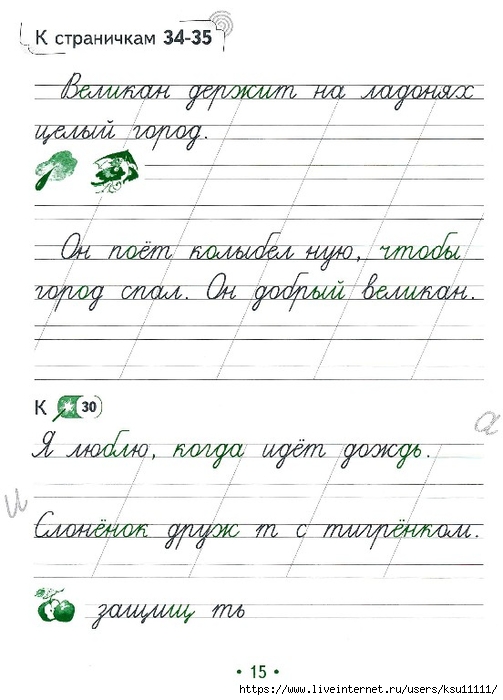 К страничкам 34-35
Великан держит на ладонях
целый город.
Он поёт колыбел ную, чтобы
город спал. Он добрый великан.
К 30
Я люблю, когда идёт дождь.
а
и
Слонёнок друж т с тигрёнком.
защищ ть
• 15 •
https://www.liveinternet.ru/users/ksu11111/